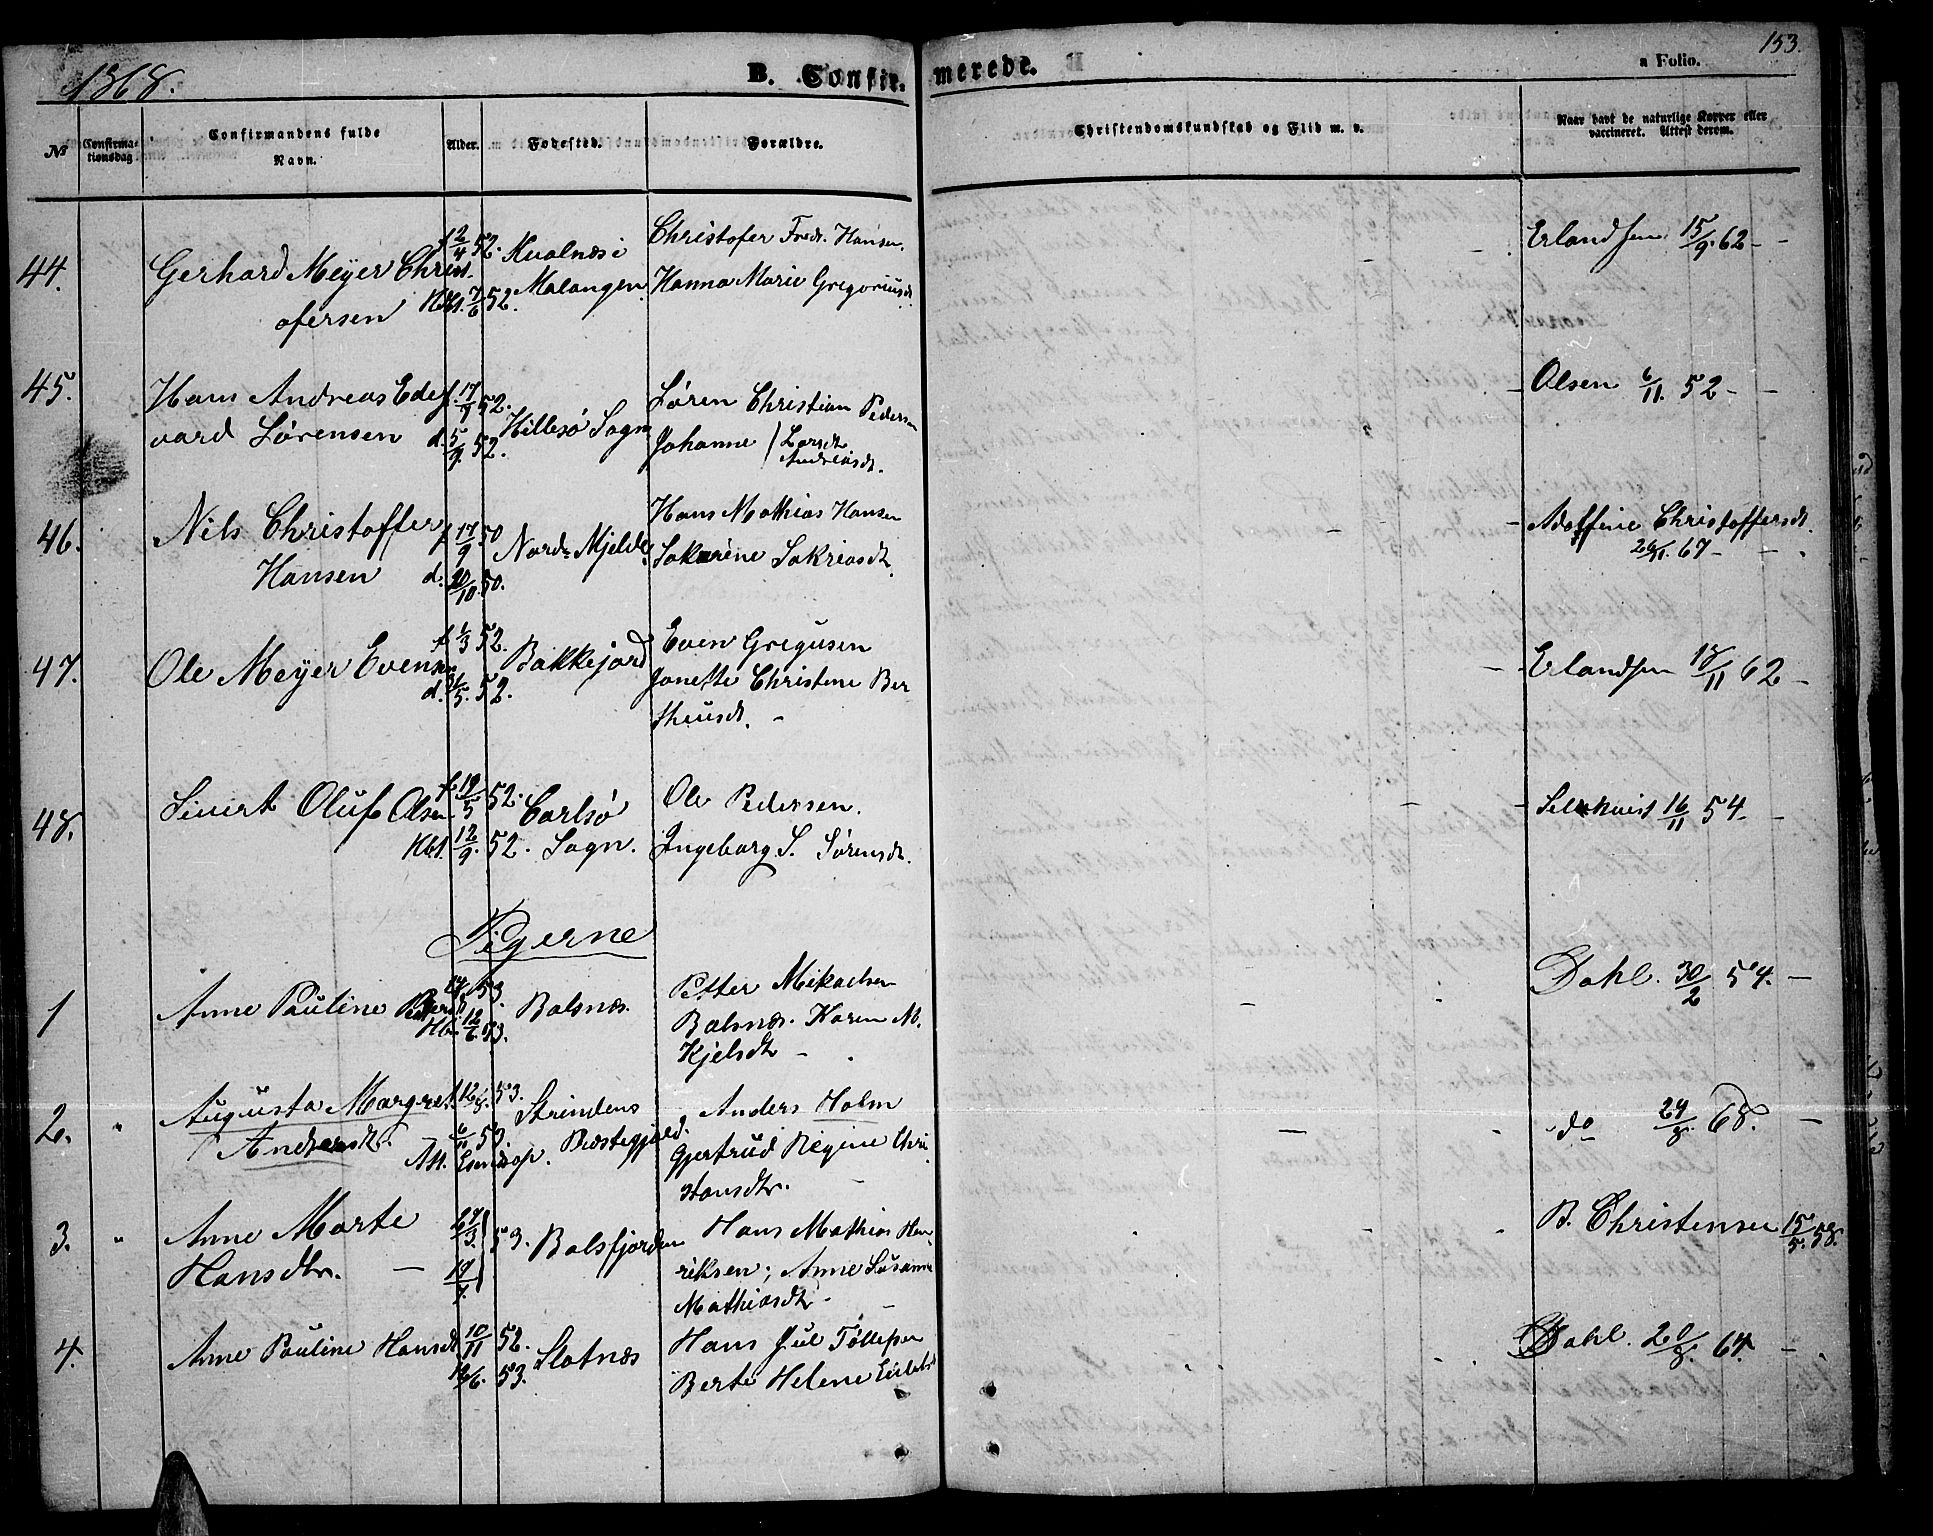 1868.
B. Confirmerede.
153.
a Folio.
No
Confirmationsdag.
Confirmandens fulde Navn.
Alder.
Fødested.
Forældre.
Christendomskundskab og Flid m. v.
Naar havt de naturlige Kopper eller vaccineret. Attest derom.
44.
Gerhard Meyer Christ-
ofersen
f. 2/4 52.
Hbt. 7/6 52.
Kvalnæs i
Malangen
Christofer Fredr. Hansen.
Hanna Marie Gregoriusdt.
Erlandsen 15/9. 62 -
45.
Hans Andreas Ed-
vard Sørensen
f. 17/9 52.
d. 5/9 52.
Hillesø Sogn
Søren Christian Pedersen
Johanne / Larsdt
Andreasdt.
Olsen 6/11. 52 -
46.
Nils Christoffer
Hansen
f. 17/9 50
d. 20/10. 50.
Nord-Mjelde
Hans Mathias Hansen
Sakarine Sakriasdt.
Adolfine Christoffersdt.
26/11. 67 -
47.
Ole Meyer Evensen
f. 1/3 52.
d. 31/5. 52.
Bakkejord
Even Gregusen
Janette Christine Ber
theusdt. -
Erlandsen 18/11 62 -
48.
Sivert Oluf Olsen
f. 19/5 52.
Hbt. 12/9. 52.
Carlsø
Sogn.
Ole Pedersen.
Ingeborg S. Sørensdt.
16/11 54 -
Pigerne
1
Anne Pauline
53.
Hbt. 12/6 53.
Balsnæs.
Petter Mikaelsen
Balsnæs. Karen M.
Kjelsdtr -
Dahl. 30/2 54. -
2. "
Augusta Margret
Andersdtr. -
f. 12/8. 53.
6/11 53.
Att.
Strindens
Præstegjeld.
Anders Holm
Gjertrud Regine Chri-
stansdtr. -
do 24/8. 68. -
3. "
Anne Marte
Hansdtr. -
53.
Balsfjorden
Hans Mathias Hen-
riksen; Anne Susanna
Mathiasdtr -
B. Christensen 15/5. 58.
4.
Anne Pauline Hansdt
10/11 52.
19/6. 53.
Slotnæs
Hans Jul Tøllefsen
Berte Helene
Dahl. 20/8. 64. -